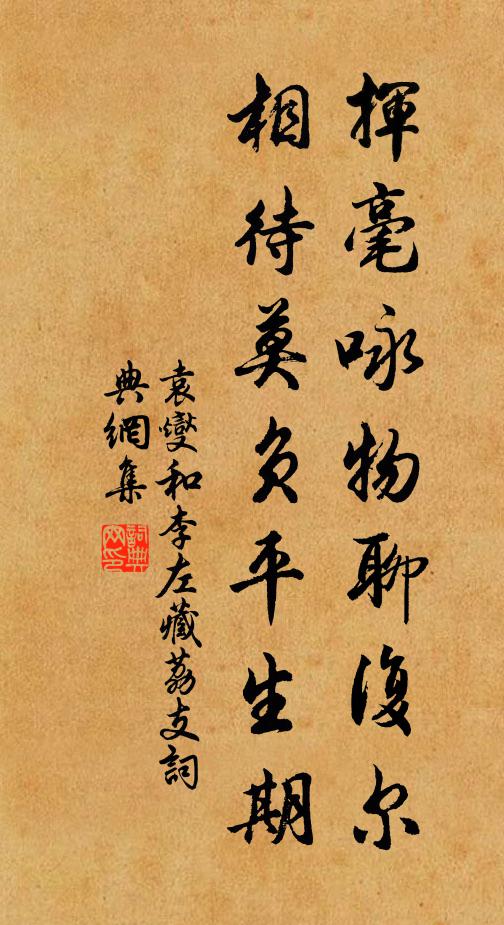 揮毫咏物聊復尔
相待莫負平生期
袁燮和李左藏荔支詞
典網集
詞典網印